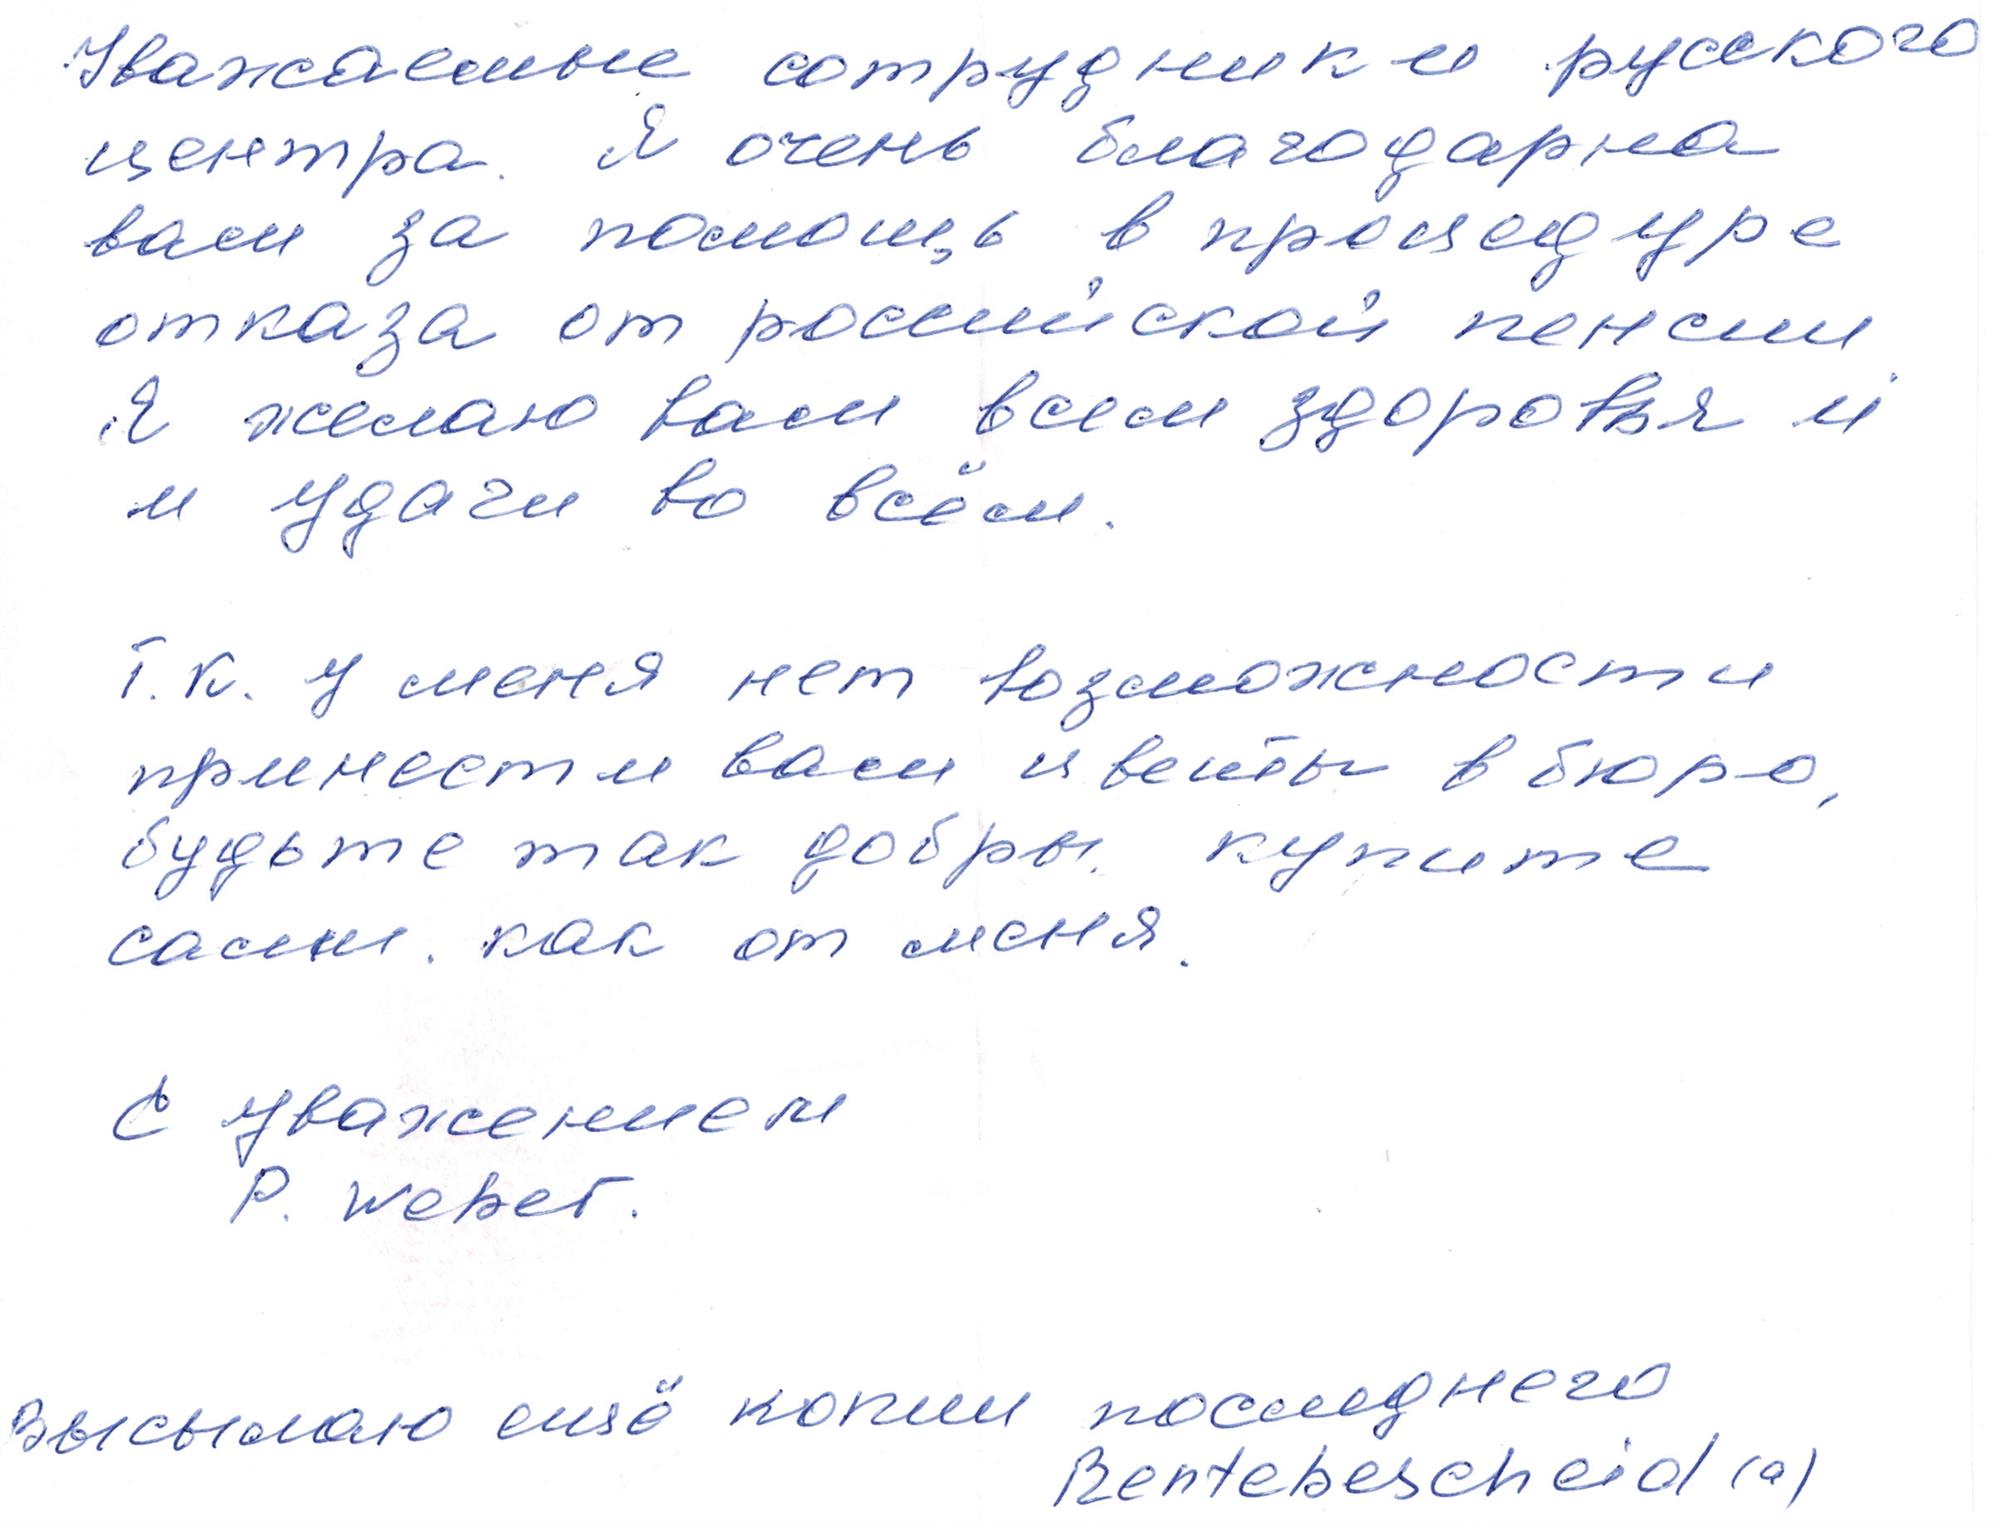 Уважаемые сотрудники русского
центра. Я очень благодарна
вам за помощь в процедуре
отказа от российской пенсии
Я желаю вам всем здоровья и
и удачи во всём.
Т.к. у меня нет возможности
принести вам цветы в бюро,
будьте так добры. купите
сами. как от меня.
С уважением
Р. Weber.
Высылаю ещё копии последнего
Rentebescheid (a)